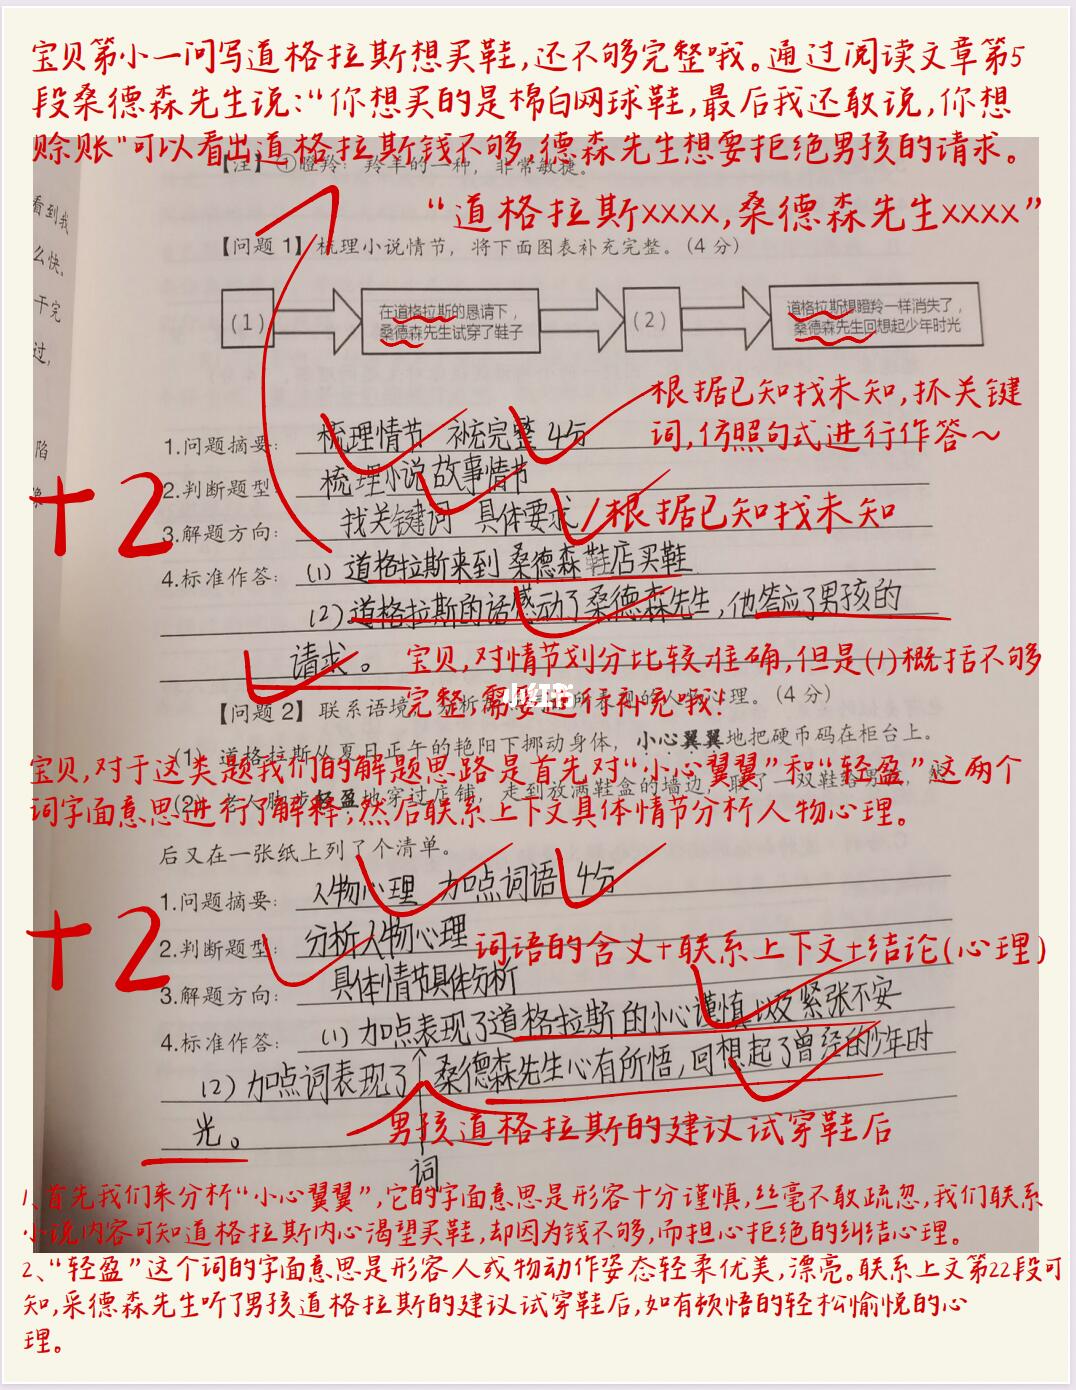 宝贝第小一问写道格拉斯想买鞋,还不够完整哦。通过阅读文章第5
段桑德森先生说:“你想买的是棉白网球鞋,最后我还敢说,你想
赊账”可以看出道格拉斯钱不够,德森先生想要拒绝男孩的请求。
【注】①瞪羚:羚羊的一种,非常敏捷。
“道格拉斯xxxx,桑德森先生xxxx”
看到我
么快。
干完
过,
陷
【问题1】梳理小说情节,将下面图表补充完整。(4分)
(1)
在道格拉斯的恳请下,
桑德森先生试穿了鞋子
(2)
道格拉斯想瞪羚一样消失了,
桑德森先生回想起少年时光
根据已知找未知,抓关键
词,仿照句式进行作答~
1.问题摘要: 梳理情节 补充完整 4分
2.判断题型: 梳理小说故事情节
3.解题方向: 找关键词 具体要求/根据已知找未知
+2
4.标准作答: (1) 道格拉斯来到桑德森鞋店买鞋
(2)道格拉斯的话感动了桑德森先生,他答应了男孩的
请求。
宝贝,对情节划分比较准确,但是(1)概括不够
完整,需要进行补充哦!
小红书
【问题2】联系语境,分析加点词语所表现的人物心理。(4分)
(1) 道格拉斯从夏日正午的艳阳下挪动身体,小心翼翼地把硬币码在柜台上。
宝贝,对于这类题我们的解题思路是首先对“小心翼翼”和“轻盈”这两个
词字面意思进行了解释,然后联系上下文具体情节分析人物心理。
(2) 老人脚步轻盈地穿过店铺,走到放满鞋盒的墙边,取了一双鞋给男孩,然
后又在一张纸上列了个清单。
1.问题摘要: 人物心理 加点词语 4分
2.判断题型: 分析人物心理
词语的含义+联系上下文+结论(心理)
3.解题方向: 具体情节具体分析
+2
4.标准作答: (1) 加点表现了道格拉斯的小心谨慎以及紧张不安
(2) 加点词表现了桑德森先生心有所悟,回想起了曾经的少年时
光。
男孩道格拉斯的建议试穿鞋后
词
1、首先我们来分析“小心翼翼”,它的字面意思是形容十分谨慎,丝毫不敢疏忽,我们联系
小说内容可知道格拉斯内心渴望买鞋,却因为钱不够,而担心拒绝的纠结心理。
2、“轻盈”这个词的字面意思是形容人或物动作姿态轻柔优美,漂亮。联系上文第22段可
知,采德森先生听了男孩道格拉斯的建议试穿鞋后,如有顿悟的轻松愉悦的心
理。